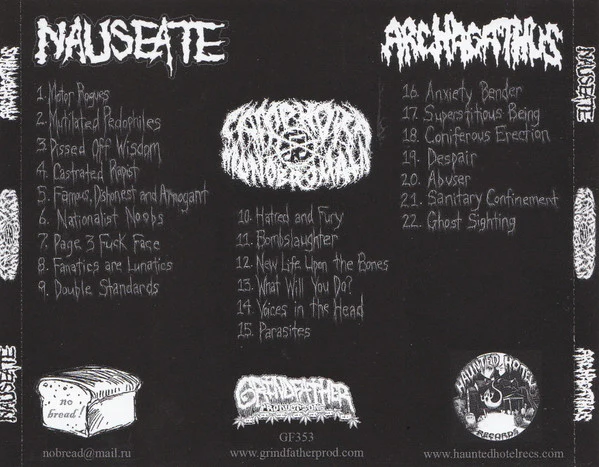 NAUSEATE
1. Motor Rogues
2. Mutilated Pedophiles
3. Pissed Off Wisdom
4. Castrated Rapist
5. Famous, Dishonest and Arrogant
6. Nationalist Noobs
7. Page 3 Fuck Face
8. Fanatics are Lunatics
9. Double Standards
10. Hatred and Fury
11. Bombslaughter
12. New Life Upon the Bones
13. What Will You Do?
14. Voices in the Head
15. Parasites
ARCHAGATHUS
16. Anxiety Bender
17. Superstitious Being
18. Coniferous Erection
19. Despair
20. Abuser
21. Sanitary Confinement
22. Ghost Sighting
ARCHAGATHUS
NAUSEATE
NAUSEATE
ARCHAGATHUS
no
bread!
nobread@mail.ru
GRINDFATHER
PRODUCTIONS
GF353
www.grindfatherprod.com
HAUNTED HOTEL
RECORDS
www.hauntedhotelrecs.com